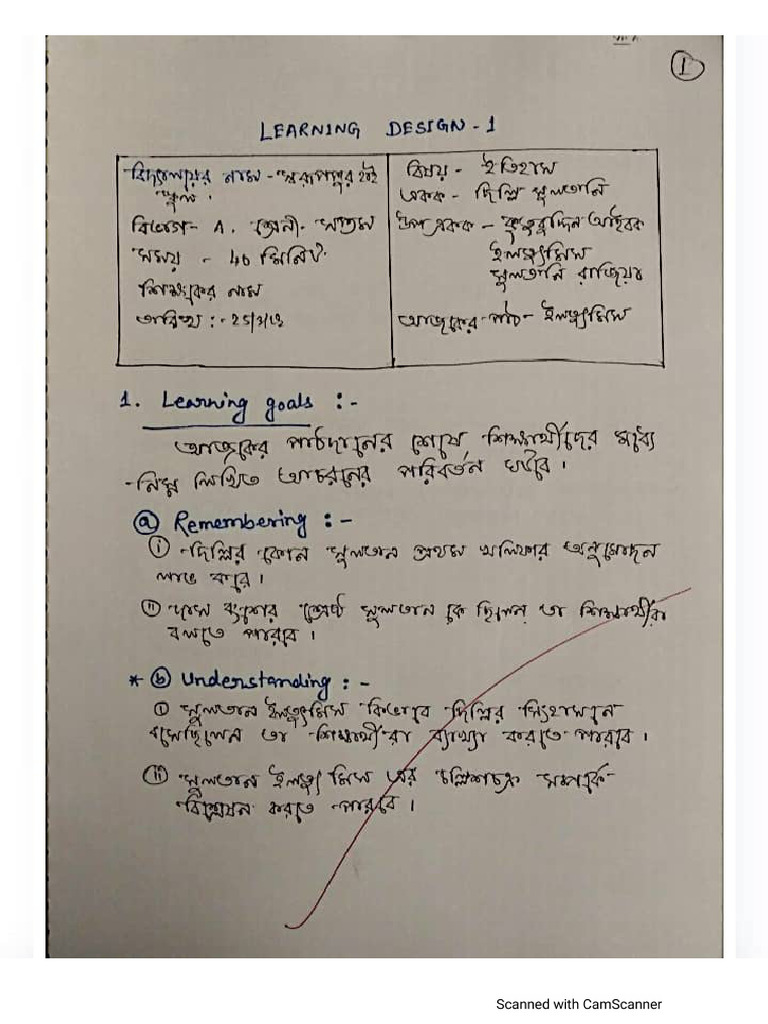 1
LEARNING DESIGN - 1
বিদ্যালয়ের নাম - স্বরূপপুর হাই
স্কুল।
বিভাগ - A. শ্রেনী - সপ্তম
সময় - 40 মিনিট
শিক্ষকের নাম
তারিখ :-
বিষয় - ইতিহাস
একক - দিল্লি সুলতানি
উপ একক - কুতুবুদ্দিন আইবক
ইলতুৎমিস
সুলতানি রাজিয়া
আজকের পাঠ - ইলতুৎমিস
1. Learning goals :-
আজকের পাঠদানের শেষে শিক্ষার্থীদের মধ্যে
নিম্ন লিখিত আচরনের পরিবর্তন ঘটবে।
ⓐ Remembering :-
ⓘ দিল্লির কোন সুলতান প্রথম খলিফার অনুমোদন
লাভ করে।
ⓘⓘ দাস বংশের শ্রেষ্ঠ সুলতান কে ছিলেন তা শিক্ষার্থীরা
বলতে পারবে।
* ⓑ Understanding :-
ⓘ সুলতান ইলতুৎমিস কিভাবে দিল্লির সিংহাসনে
বসেছিলেন তা শিক্ষার্থীরা ব্যাখ্যা করতে পারবে।
ⓘⓘ সুলতান ইলতুৎমিস এর চল্লিশচক্র সম্পর্কে
বিশ্লেষন করতে পারবে।
Scanned with CamScanner